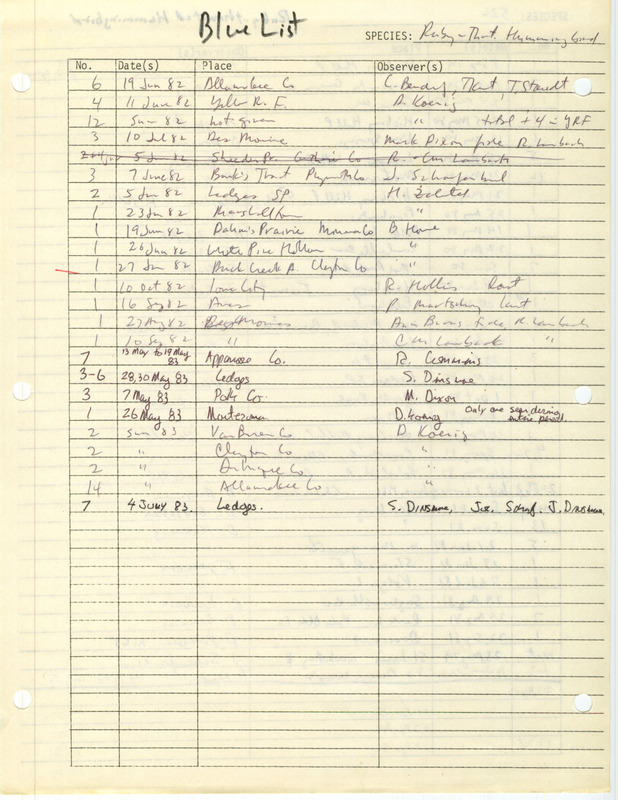 Blue List
SPECIES: Ruby-Thrt. Hummingbird
No. Date(s) Place Observer(s)
6 19 Jun 82 Allamakee Co C. Bendorf, Thart, T Staudt
4 11 June 82 Yellow R. F. D. Koenig
12 Jun 82 not given " total + 4 in YRF
3 10 Jul 82 Des Moines Mark Dixon fide R Lambach
5 Jun 82 Guthrie Co R. Lambach
3 7 June 82 Plymouth Co J. Schaufenbuel
2 5 Jun 82 Ledges SP H. Zeltel
1 23 Jun 82 Marshalltown "
1 19 Jun 82 Prairie Monona Co B. Howe
1 26 Jun 82 White Pine Hollow "
1 27 Jun 82 Buck Creek Clayton Co "
1 10 Oct 82 Iowa City R. Hollis last
1 16 Sep 82 Ames P. Martsching last
1 27 Aug 82 Des Moines Ann Burns fide R Lambach
1 10 Sep 82 " Lambach "
7 13 May to 19 May 83 Appanoose Co. R. Cummins
3-6 28,30 May 83 Ledges S. Dinsmore
3 7 May 83 Polk Co. M. Dixon
1 26 May 83 Montezuma D. Koenig Only one seen during entire period.
2 Jun '83 Van Buren Co D. Koenig
2 " Clayton Co "
2 " Dubuque Co "
14 " Allamakee Co "
7 4 June 83. Ledges. S. Dinsmore, J. Dinsmore.